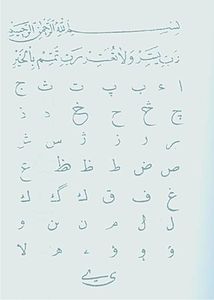 بسم الله الرحمن الرحيم
رب يسر ولا تعسر رب تمم بالخير
ا ء ب پ ت ث ج
چ ح خ د ذ
ر ژ س
ص ض ط ظ ع
غ ف ق ك گ ك
ل م ن و
و ؤ ء ه لا
ي